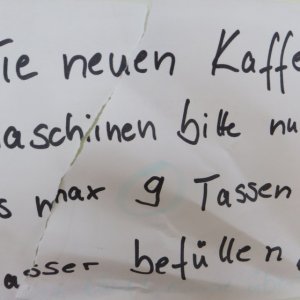 ie neuen Kaffe
aschiinen bitte nu
s max 9 Tassen
asser befüllen,